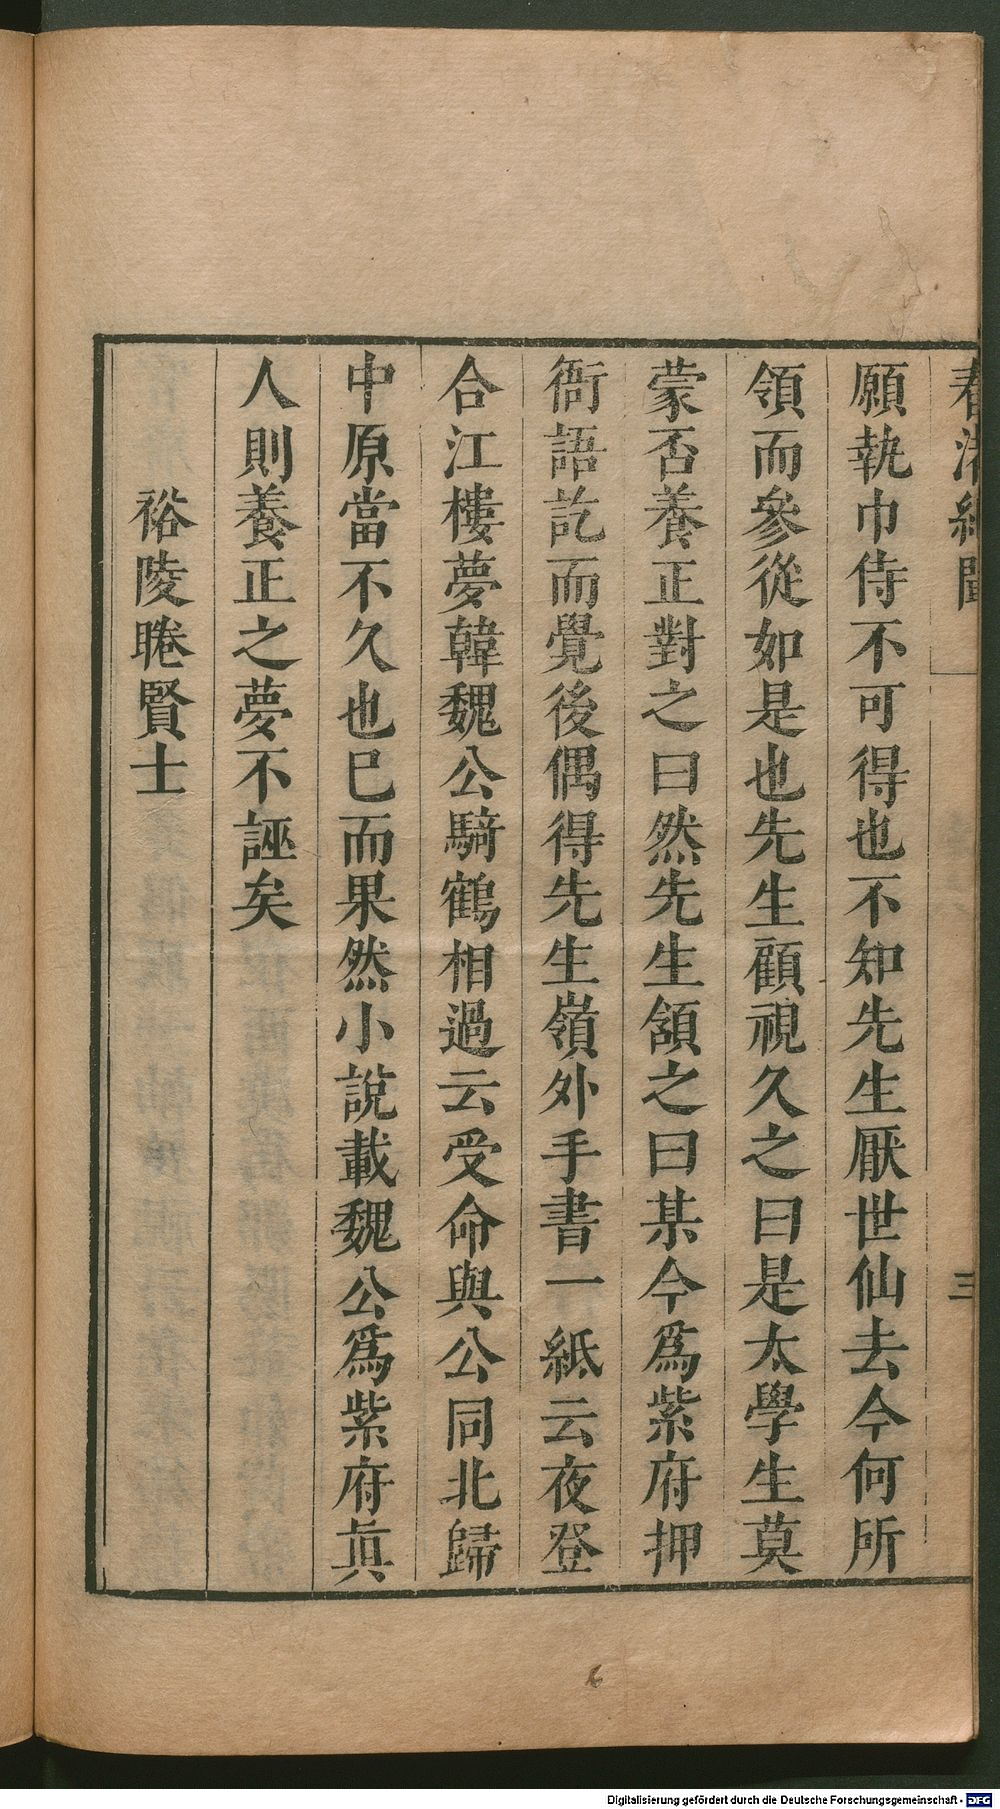 春渚紀聞
三
願執巾侍不可得也不知先生厭世仙去今何所
領而參從如是也先生顧視久之曰是太學生莫
蒙否養正對之曰然先生頷之曰某今爲紫府押
衙語訖而覺後偶得先生嶺外手書一紙云夜登
合江樓夢韓魏公騎鶴相過云受命與公同北歸
中原當不久也巳而果然小說載魏公爲紫府眞
人則養正之夢不誣矣
裕陵睠賢士
6
Digitalisierung gefördert durch die Deutsche Forschungsgemeinschaft - DFG